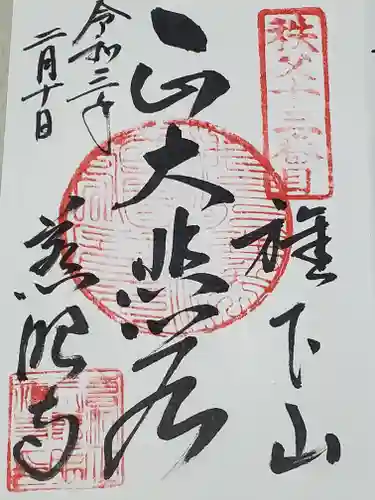 秩父十三番目
旗下山
大悲
慈眼寺
令和三年
二月十日